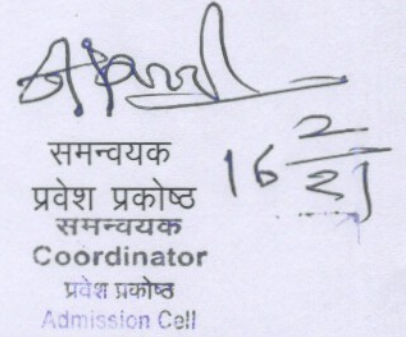 समन्वयक
प्रवेश प्रकोष्ठ
16 2/21
समन्वयक
Coordinator
प्रवेश प्रकोष्ठ
Admission Cell